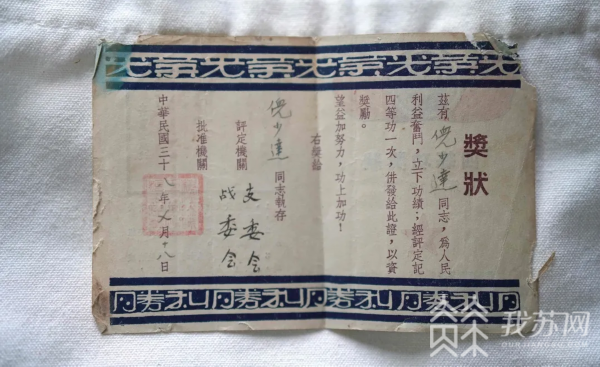 光榮光榮光榮光榮光
獎狀
茲有倪少達同志,為人民
利益奮鬥,立下功績;經評定記
四等功一次,併發給此證,以資
勵。
望益加努力,功上加功!
右給
倪少達同志執存
評定機關 支委会
批准機關 战委会
中華民國三十八年月十八日
勝利勝利勝利勝利
我苏网
OURJIANGSU.COM